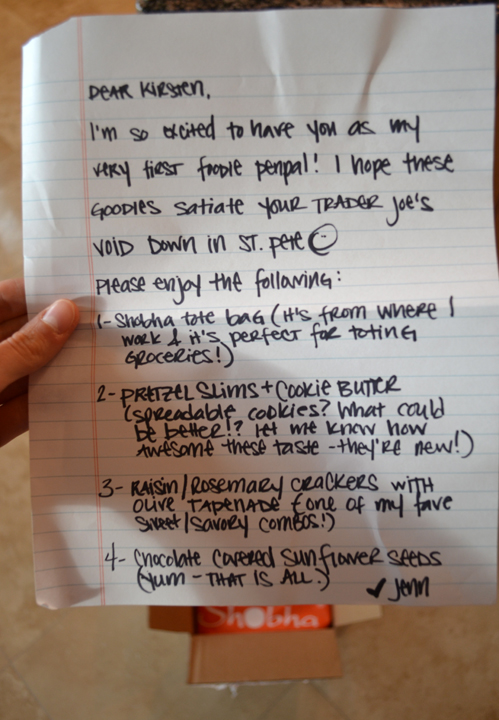 DEAR KIRSTEN,
I'M SO EXCITED TO HAVE YOU AS MY
VERY FIRST FOODIE PENPAL! I HOPE THESE
GOODIES SATIATE YOUR TRADER JOE'S
VOID DOWN IN ST. PETE
PLEASE ENJOY THE FOLLOWING:
1- Shobha tote bag (it's from where I
work & it's perfect for toting
groceries!)
2- PRETZEL SLIMS + COOKIE BUTTER
(spreadable cookies? What could
be better!? Let me know how
awesome these taste - they're new!)
3- RAISIN/ROSEMARY CRACKERS WITH
OLIVE TAPENADE (one of my fave
sweet/savory combos!)
4- Chocolate covered sunflower seeds
(yum - THAT IS ALL.)
Jenn
Shobha